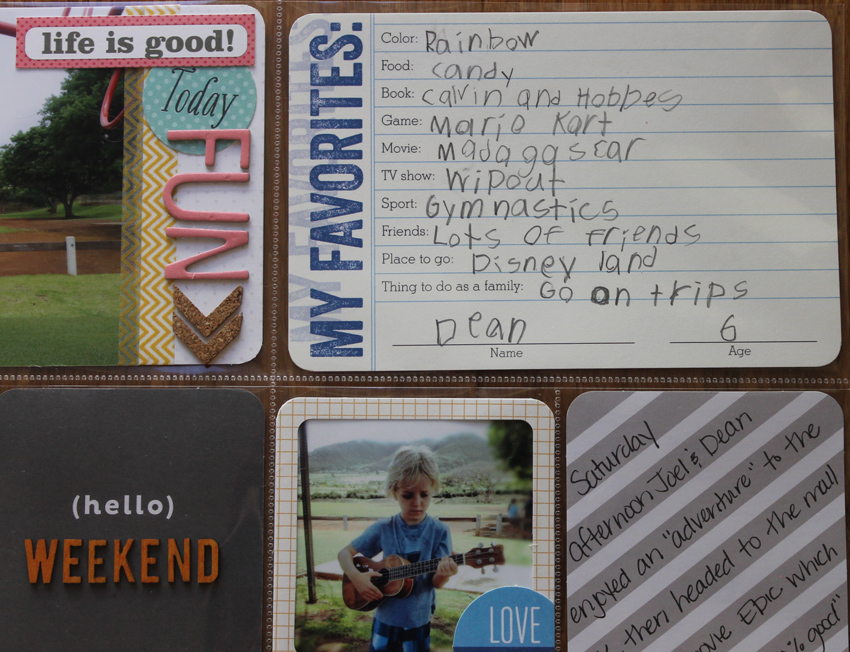 life is good!
Today
FUN
MY FAVORITES:
Color: Rainbow
Food: candy
Book: calvin and Hobbes
Game: Marie Kart
Movie: Madagascar
TV show: Wipout
Sport: Gymnastics
Friends: Lots of friends
Place to go: Disney land
Thing to do as a family: Go on trips
Dean 6
Name Age
(hello)
WEEKEND
LOVE
Saturday
afternoon Joel & Dean
enjoyed an "adventure" to the
then headed to the mall
movie Epic which
% good"